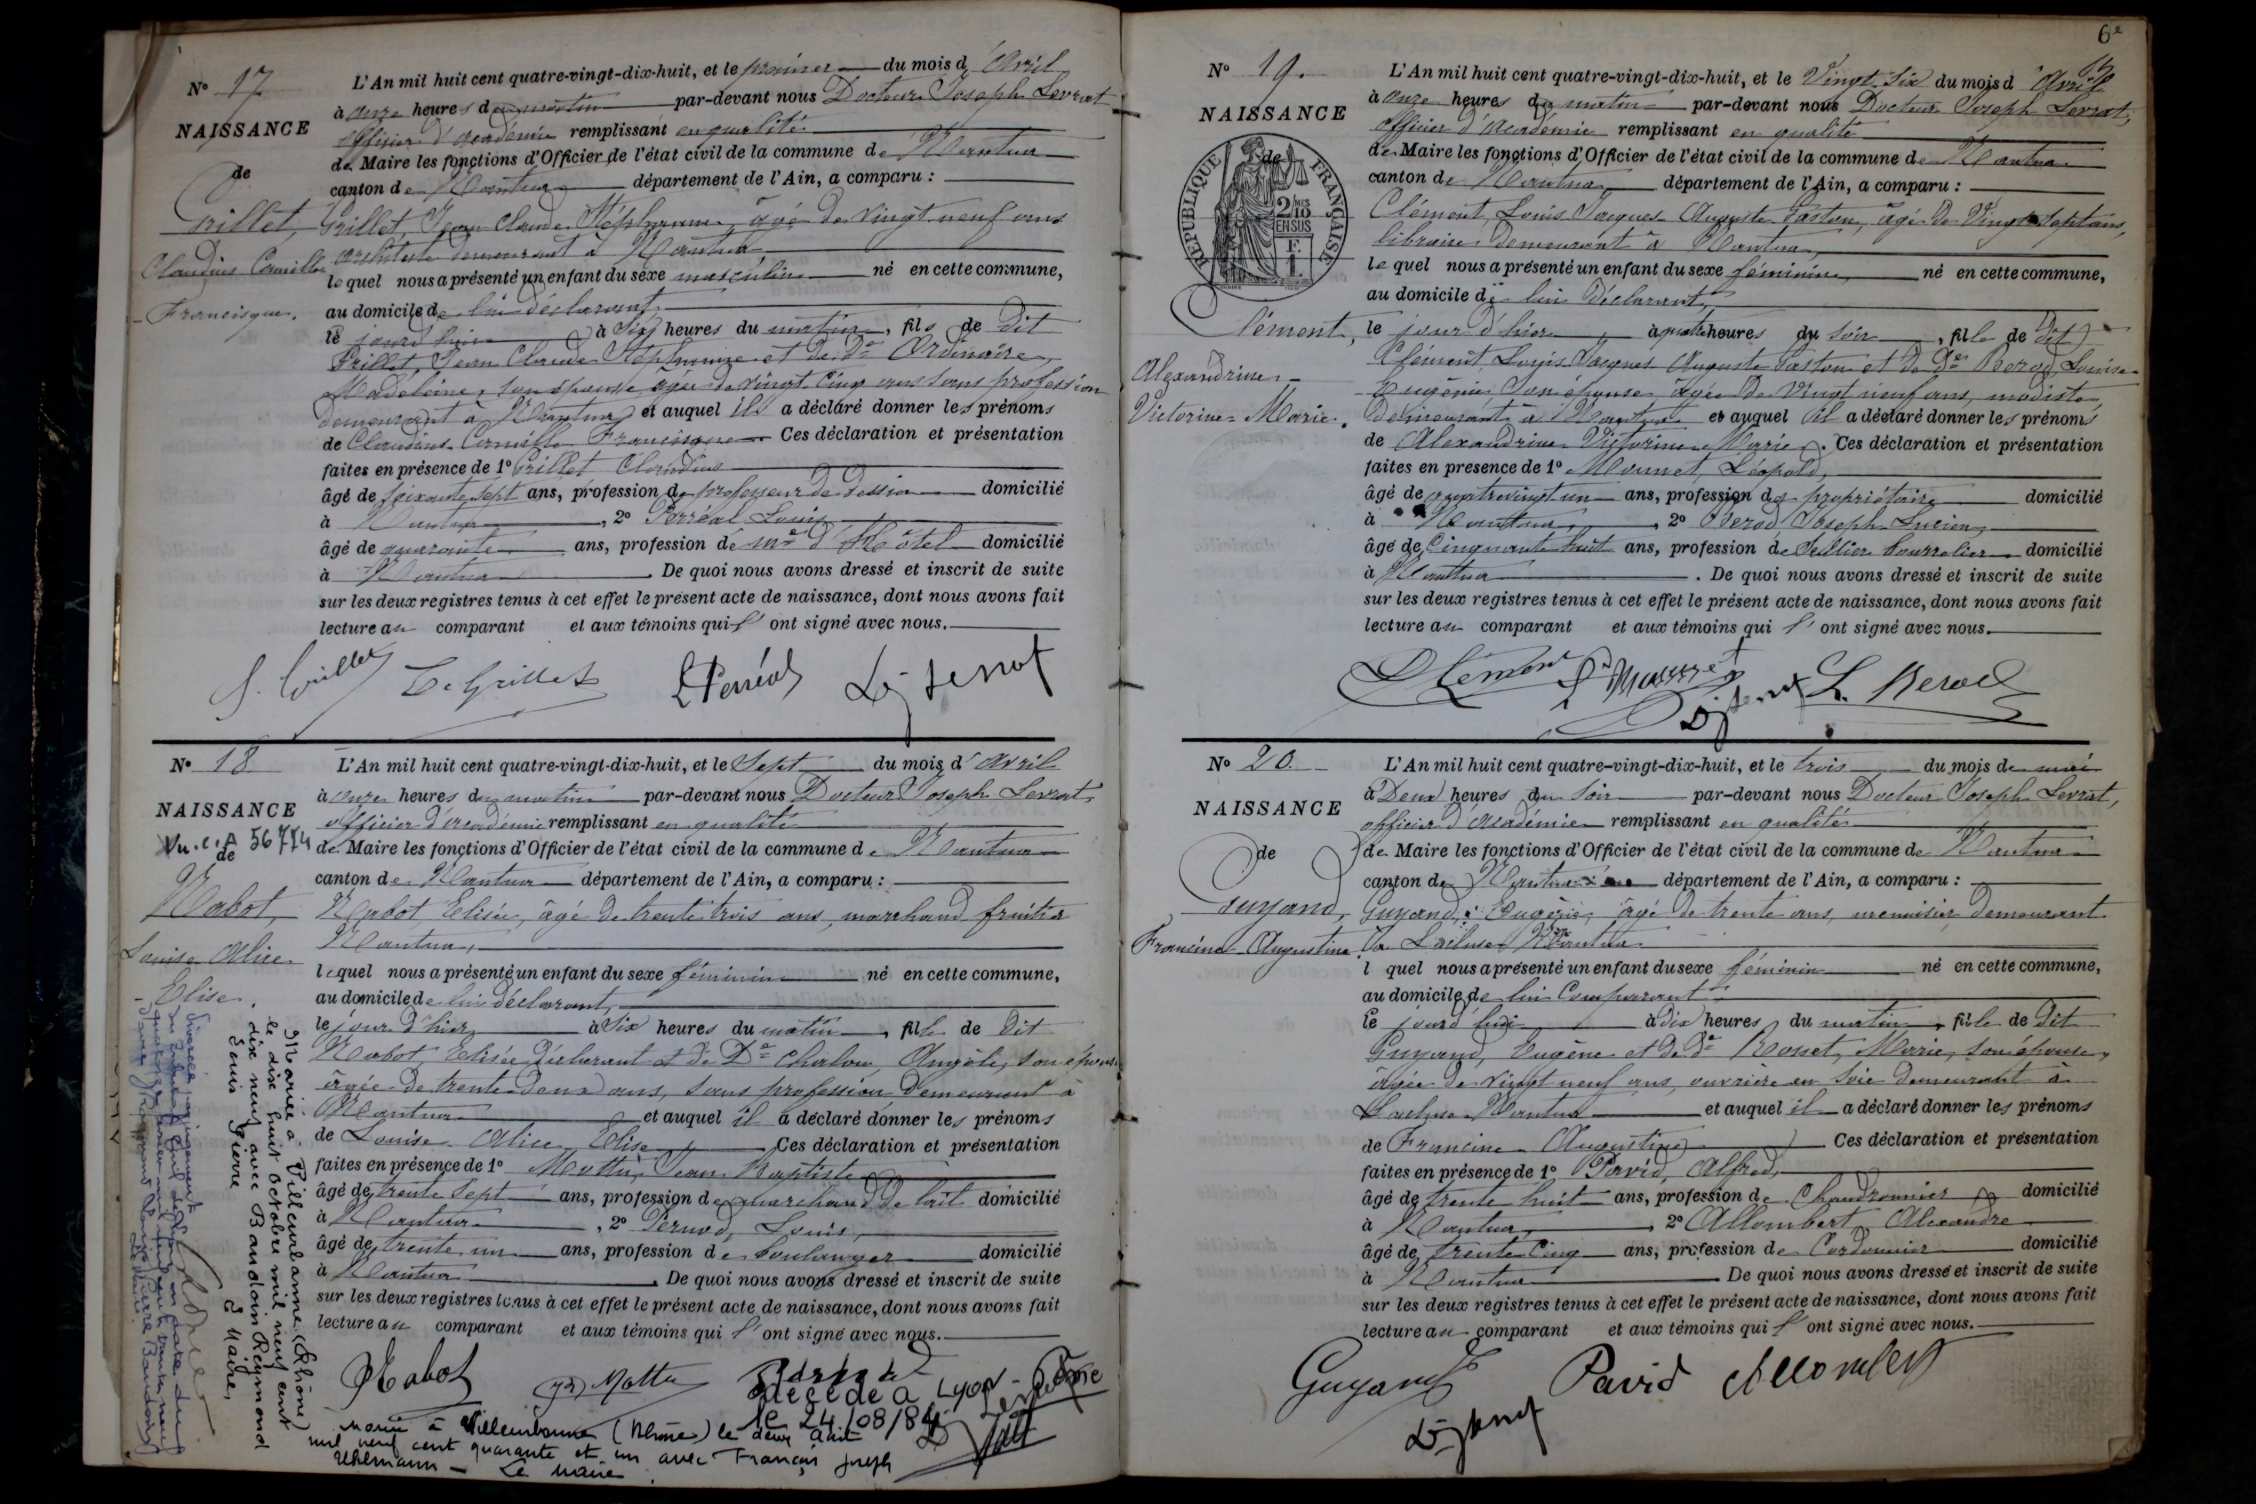 N° 17
NAISSANCE
de
Grillet,
Claudius Camille
Francisque.
L'An mil huit cent quatre-vingt-dix-huit, et le premier du mois d'Avril
à onze heures du matin par-devant nous Docteur Joseph Levrat
officier d'académie remplissant en qualité
de Maire les fonctions d'Officier de l'état civil de la commune de Nantua
canton de Nantua département de l'Ain, a comparu :
Grillet, Jean Claude Stéphane, âgé de vingt neuf ans
architecte demeurant à Nantua
lequel nous a présenté un enfant du sexe masculin né en cette commune,
au domicile de lui déclarant,
le jourd'hui à six heures du matin, fils de dit
Grillet, Jean Claude Stéphane et de De Ordinaire,
Madeleine, son épouse âgée de vingt cinq ans sans profession
demeurant à Nantua et auquel il a déclaré donner les prénoms
de Claudius Camille Francisque Ces déclaration et présentation
faites en présence de 1° Grillet Claudius
âgé de soixante sept ans, profession de professeur de dessin domicilié
à Nantua, 2° Perréal Louis
âgé de quarante ans, profession de me d'Hôtel domicilié
à Nantua. De quoi nous avons dressé et inscrit de suite
sur les deux registres tenus à cet effet le présent acte de naissance, dont nous avons fait
lecture au comparant et aux témoins qui l'ont signé avec nous.
S. Grillet C. Grillet L Perréal Dr J Levrat
N° 18
NAISSANCE
Vu. C.A 56774
de
Nabot,
Louise Alice
Elise.
L'An mil huit cent quatre-vingt-dix-huit, et le Sept du mois d'Avril
à onze heures du matin par-devant nous Docteur Joseph Levrat
officier d'académie remplissant en qualité
de Maire les fonctions d'Officier de l'état civil de la commune de Nantua
canton de Nantua département de l'Ain, a comparu :
Nabot Elisée, âgé de trente trois ans, marchand fruitier
Nantua,
lequel nous a présenté un enfant du sexe féminin né en cette commune,
au domicile de lui déclarant,
le jour d'hier à six heures du matin, fille de dit
Nabot, Elisée déclarant et de De Chalon, Angèle, son épouse
âgée de trente deux ans, sans profession, demeurant à
Nantua et auquel il a déclaré donner les prénoms
de Louise Alice Elise Ces déclaration et présentation
faites en présence de 1° Mottu, Jean Baptiste
âgé de trente sept ans, profession de marchand de lait domicilié
à Nantua, 2° Pernod, Louis,
âgé de trente un ans, profession de boulanger domicilié
à Nantua. De quoi nous avons dressé et inscrit de suite
sur les deux registres tenus à cet effet le présent acte de naissance, dont nous avons fait
lecture au comparant et aux témoins qui l'ont signé avec nous.
Nabot Mottu
décédé à Lyon
le 24/08/84
Mariée à Villeurbanne (Rhône) le deux Août
mil neuf cent quarante et un avec François Joseph
Uhlmann - Le Maire
Mariée à Villeurbanne (Rhône)
le dix huit octobre mil neuf cent
dix neuf avec Baudoin Reymond
Louis Pierre Le Maire,
N° 19.
NAISSANCE
de
REPUBLIQUE FRANÇAISE
2/10 EN SUS
Clément,
Alexandrine
Victorine Marie.
6e
L'An mil huit cent quatre-vingt-dix-huit, et le Vingt Six du mois d'Avril
à onze heures du matin par-devant nous Docteur Joseph Levrat,
officier d'Académie remplissant en qualité
de Maire les fonctions d'Officier de l'état civil de la commune de Nantua
canton de Nantua département de l'Ain, a comparu :
Clément, Louis Jacques Auguste Gaston, âgé de Vingt sept ans,
libraire demeurant à Nantua,
lequel nous a présenté un enfant du sexe féminin né en cette commune,
au domicile de lui Déclarant,
le jour d'hier, à quatre heures du soir, fille de dit
Clément, Louis Jacques Auguste Gaston et de De Berod Louise
Eugénie, son épouse, âgée de vingt neuf ans, modiste,
demeurant à Nantua et auquel il a déclaré donner les prénoms
de Alexandrine Victorine Marie. Ces déclaration et présentation
faites en présence de 1° Mounet, Léopold,
âgé de quatrevingt un ans, profession de propriétaire domicilié
à Nantua, 2° Berod Joseph Lucien,
âgé de Cinquante huit ans, profession de Sellier bourrelier domicilié
à Nantua. De quoi nous avons dressé et inscrit de suite
sur les deux registres tenus à cet effet le présent acte de naissance, dont nous avons fait
lecture au comparant et aux témoins qui l'ont signé avec nous.
Clément L. Berod
N° 20.
NAISSANCE
de
Guyand,
Francine Augustine.
L'An mil huit cent quatre-vingt-dix-huit, et le trois du mois de mai
à Deux heures du Soir par-devant nous Docteur Joseph Levrat,
officier d'Académie remplissant en qualité
de Maire les fonctions d'Officier de l'état civil de la commune de Nantua
canton de Nantua département de l'Ain, a comparu :
Guyand, Eugène, âgé de trente ans, menuisier demeurant
à Lacluse Nantua
lequel nous a présenté un enfant du sexe féminin né en cette commune,
au domicile de lui Comparant
le jourd'hui à dix heures du matin, fille de dit
Guyand, Eugène et de De Rosset, Marie, son épouse,
âgée de vingt neuf ans, ouvrière en Soie demeurant à
Lacluse Nantua et auquel il a déclaré donner les prénoms
de Francine Augustine Ces déclaration et présentation
faites en présence de 1° Pavid, Alfred,
âgé de trente huit ans, profession de Chaudronnier domicilié
à Nantua, 2° Allombert Alexandre
âgé de trente cinq ans, profession de Cordonnier domicilié
à Nantua. De quoi nous avons dressé et inscrit de suite
sur les deux registres tenus à cet effet le présent acte de naissance, dont nous avons fait
lecture au comparant et aux témoins qui l'ont signé avec nous.
Guyand Pavid Allombert